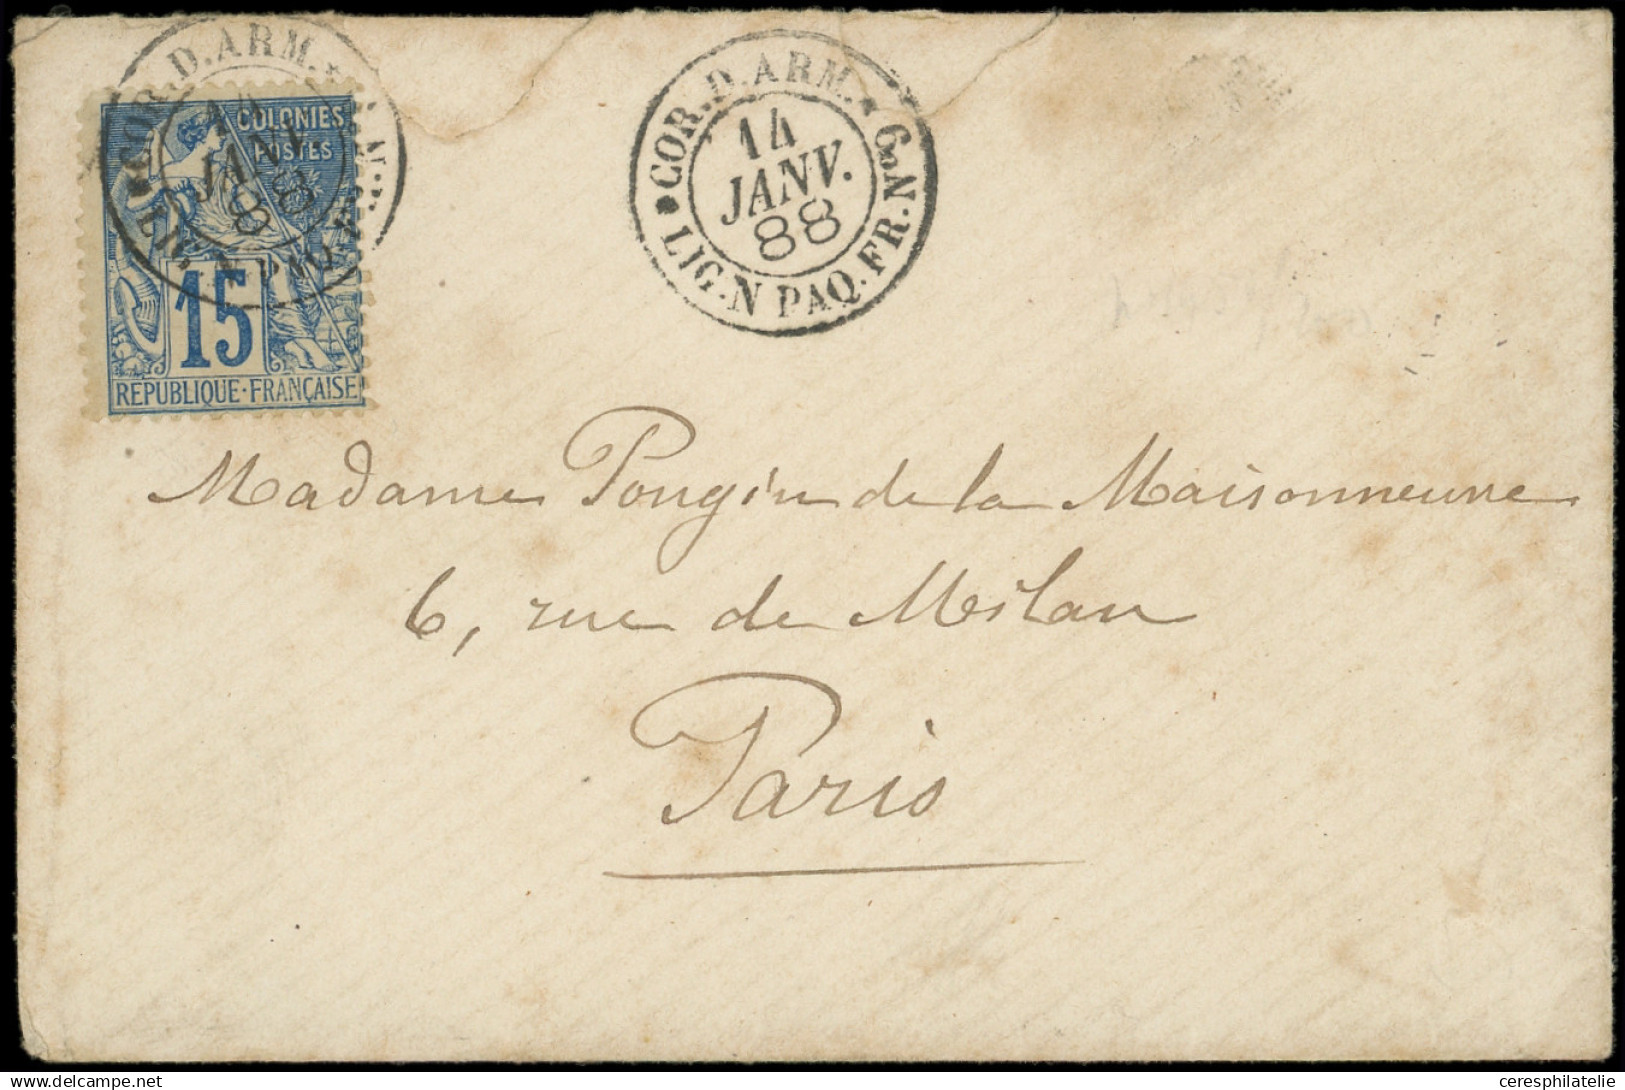 COR.D.ARM.
14
JANV.
88
COLONIES
POSTES
15
REPUBLIQUE·FRANÇAISE
COR.D.ARM.★6o N
14
JANV.
88
LIG.N PAQ.FR.
Madame Pougin de la Maisonneuve
6, rue de Milan
Paris
www.delcampe.net
ceresphilatelie